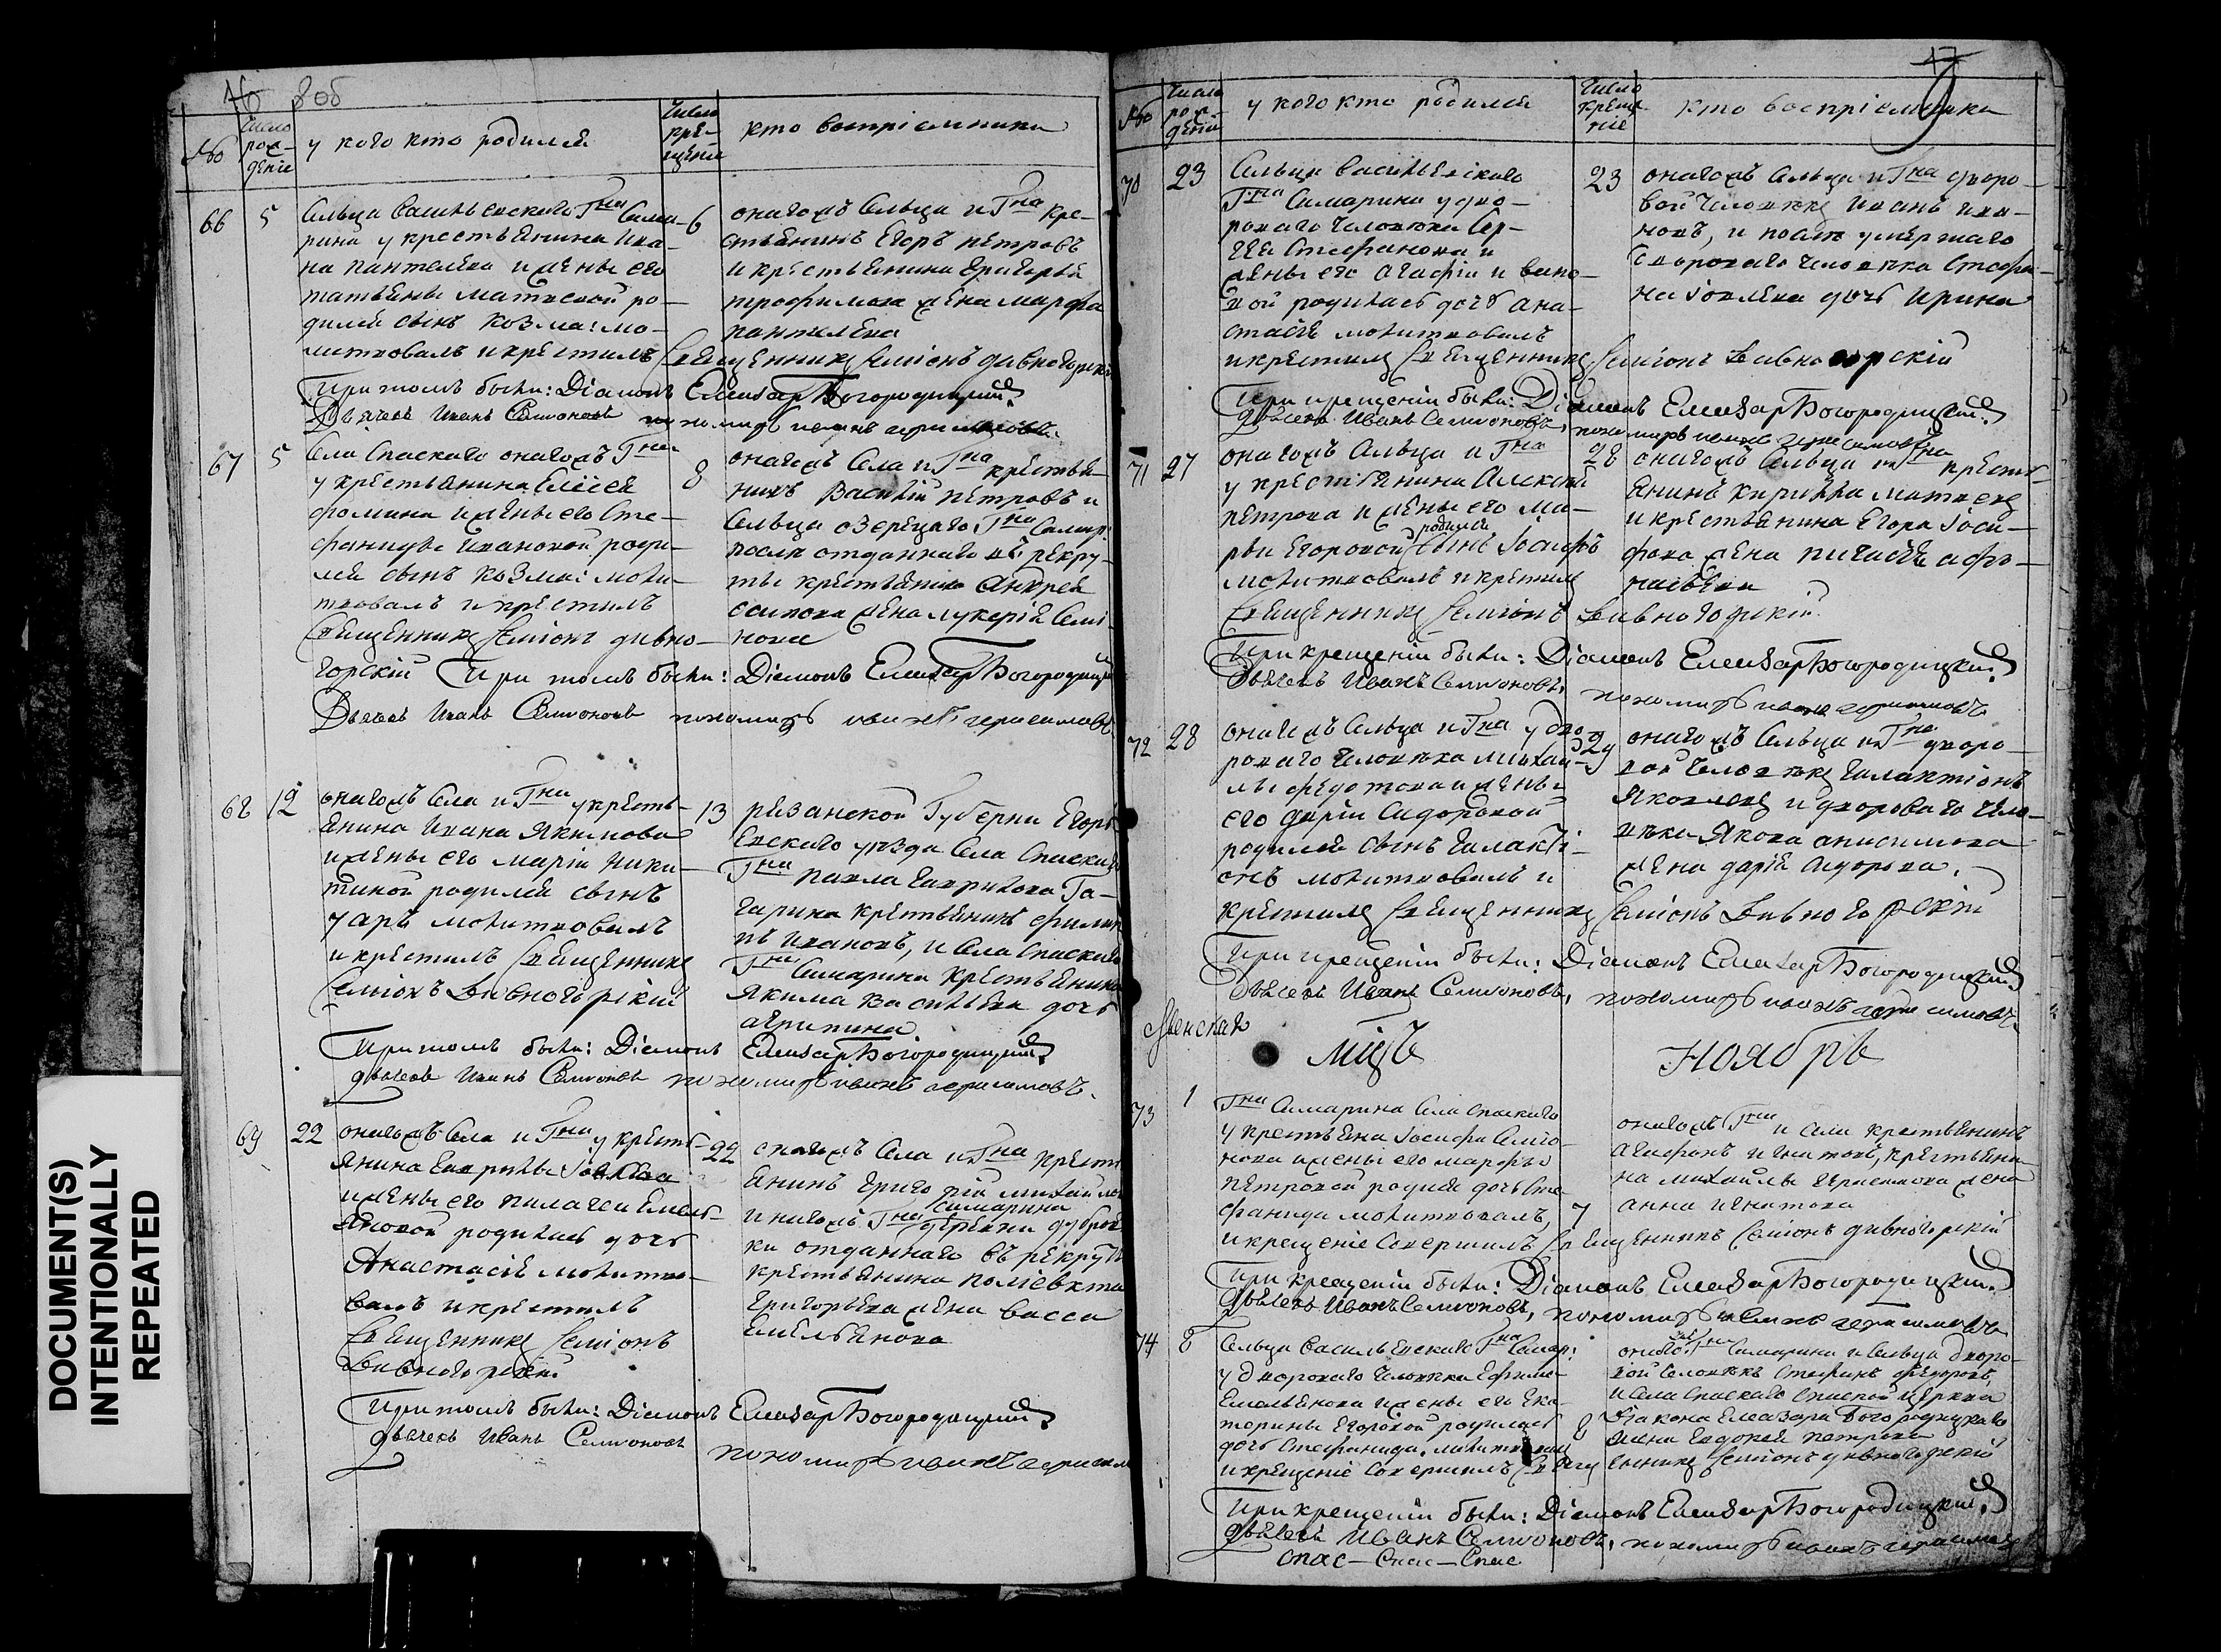 DOCUMENT(S)
INTENTIONALLY
REPEATED
16 8об
№
Число рождение
у кого кто родился
Число крещения
кто восприемники
66 5
Сельца Васильевского Гна Сама-
рина у крестьянина Ива-
на Пантелеева и жены его
татьяны матвеевой ро-
дился сынъ козма: мо-
литвовалъ и крестилъ Священникъ Семіонъ дивногорскій
6
оногожъ Сельца и Гна кре-
стьянинъ Егоръ петровъ
и крестьянина григорья
трофимова жена марфа
пантелеева
При томъ были: Діаконъ Елеазаръ Богородицкій
Дьячекъ Иванъ Семионовъ пономарь иванъ герасимовъ.
67 5
Села Спаского оногожъ Гна
у крестьянина Елісея
фомина и жены его Сте-
фаниды Ивановой роди-
лся сынъ козма: моли-
твовалъ и крестилъ
Священникъ Семіонъ дивно-
горскій
8
оногожъ Села и Гна крестья-
нинъ Василій петровъ и
Сельца озерецкаго Гна Самар:
после отданнаго въ рекру-
ты крестьянина андрея
осипова жена лукерія Семі-
нова
При томъ были: Діаконъ Елеазаръ Богородицкій
Дьячекъ Иванъ Семионовъ пономарь иванъ герасимовъ.
68 12
оногожъ Села и Гна у кресть-
янина Ивана Якимова
и жены его маріи ники-
тиной родился сынъ
уаръ молитвовалъ
и крестилъ Священникъ
Семіонъ Дивногорскій
13
резанской Губерни Егорь-
евскаго уезда Села Спаскаго
Гна павла гаврилова Га-
гарина крестьянинъ филип-
пъ Ивановъ, и Села Спаскаго
Гна Самарина крестьянина
Якима васильева дочь
агрипина
При томъ были: Діаконъ Елеазаръ Богородицкій
дьячекъ Иванъ Семионовъ пономарь иванъ герасимовъ.
69 22
оногожъ Села и Гна у кресть-
янина гаврилы Іовлева
и жены его пилагеи Емель-
яновой родилась дочь
Анастасіе молитво-
валъ и крестилъ
Священникъ Семіонъ
Дивногорскій
22
оногожъ Села и Гна крест-
янинъ григорій михайлов
и тогожъ Гна Самарина деревни дубров-
ки отданнаго въ рекруты
крестьянина поліевкта
григорьева жена васса
Емельянова
При томъ были: Діаконъ Елеазаръ Богородицкій
дьячекъ Иванъ Семионовъ пономарь иванъ герасим
17
9
№
Число рождения
у кого кто родился
Число крещение
кто восприемники
70 23
Сельца Васильевскаго
Гна Самарина у дво-
роваго человека Сер-
гея Стефанова и
жены его агафіи ивано-
вой родилась дочь ана-
стасіе молитвовалъ
и крестилъ Священникъ Семіонъ Дивногорскій
23
оногожъ Сельца и Гна дворо-
вой человекъ иванъ ива-
новъ, и после умершаго
дворовага человека Стефа-
на іовлева дочь ирина
При крещеніи были: Діаконъ Елеазаръ Богородицкій
дьячекъ Иванъ Семионовъ, пономарь иванъ герасимовъ
71 27
оногожъ Сельца и Гна
у крестьянина Алексея
петрова и жены его ма-
рьи Егоровой родился сынъ Іосифъ
молитвовалъ и крестилъ
Священникъ Семіонъ Дивногорскій
28
оногожъ Сельца и Гна кресть-
янинъ кирилла матвеевъ
и крестьянина Егора Іоси-
фова жена пигасіе афо-
насьева
При крещеніи были: Діаконъ Елеазаръ Богородицкій
дьячекъ Иванъ Семионовъ, пономарь иванъ герасимовъ
72 28
оногожъ Сельца и Гна у дво-
роваго человека михаи-
лы федотова и жены
его даріи Сидоровой
родился сынъ галакті-
онъ молитвовалъ и
крестилъ Священникъ Семіонъ Дивногорскій
29
оногожъ Сельца и Гна дворо-
вой человекъ галактіонъ
Яковлевъ и двороваго чело-
века Якова анисимова
жена дарія Сидорова.
При крещеніи были: Діаконъ Елеазаръ Богородицкій
дьячекъ Иванъ Семионовъ, пономарь иванъ герасимовъ.
мцъ Ноябрь
73 1
Гна Самарина Села Спаскаго
у крестьяна Іосифа Семіо-
нова и жены его марфы
петровой родися дочь Сте-
фанида молитвовалъ,
и крещеніе Совершилъ Священникъ Семіонъ дивногорскій
7
оногожъ Гна и села крестьянинъ
агафонъ игнатовъ, крестьяни-
на михайлы герасимова жена
анна игнатова
При крещеніи были: Діаконъ Елеазаръ Богородицкій
дьячекъ Иванъ Семионовъ, пономарь иванъ герасимовъ
74 8
Сельца Васильевскаго Гна Самар:
у двороваго человека Ефима
Емельянова и жены его Ека-
терины Егоровой родилась
дочь Стефанида. молитвовалъ
и крещеніе Совершилъ Священникъ Семіонъ дивногорскій
8
оногожъ Гна Самарина и Сельца дворо-
вой человекъ Стефанъ федоровъ,
и Села Спаскаго Спаской церкви
Діакона Елеазара Богородицкаго
жена Евдокея петрова
При крещеніи были: Діаконъ Елеазаръ Богородицкій
дьячекъ Иванъ Семионовъ, пономарь иванъ герасимовъ
спас-Спас-Спас